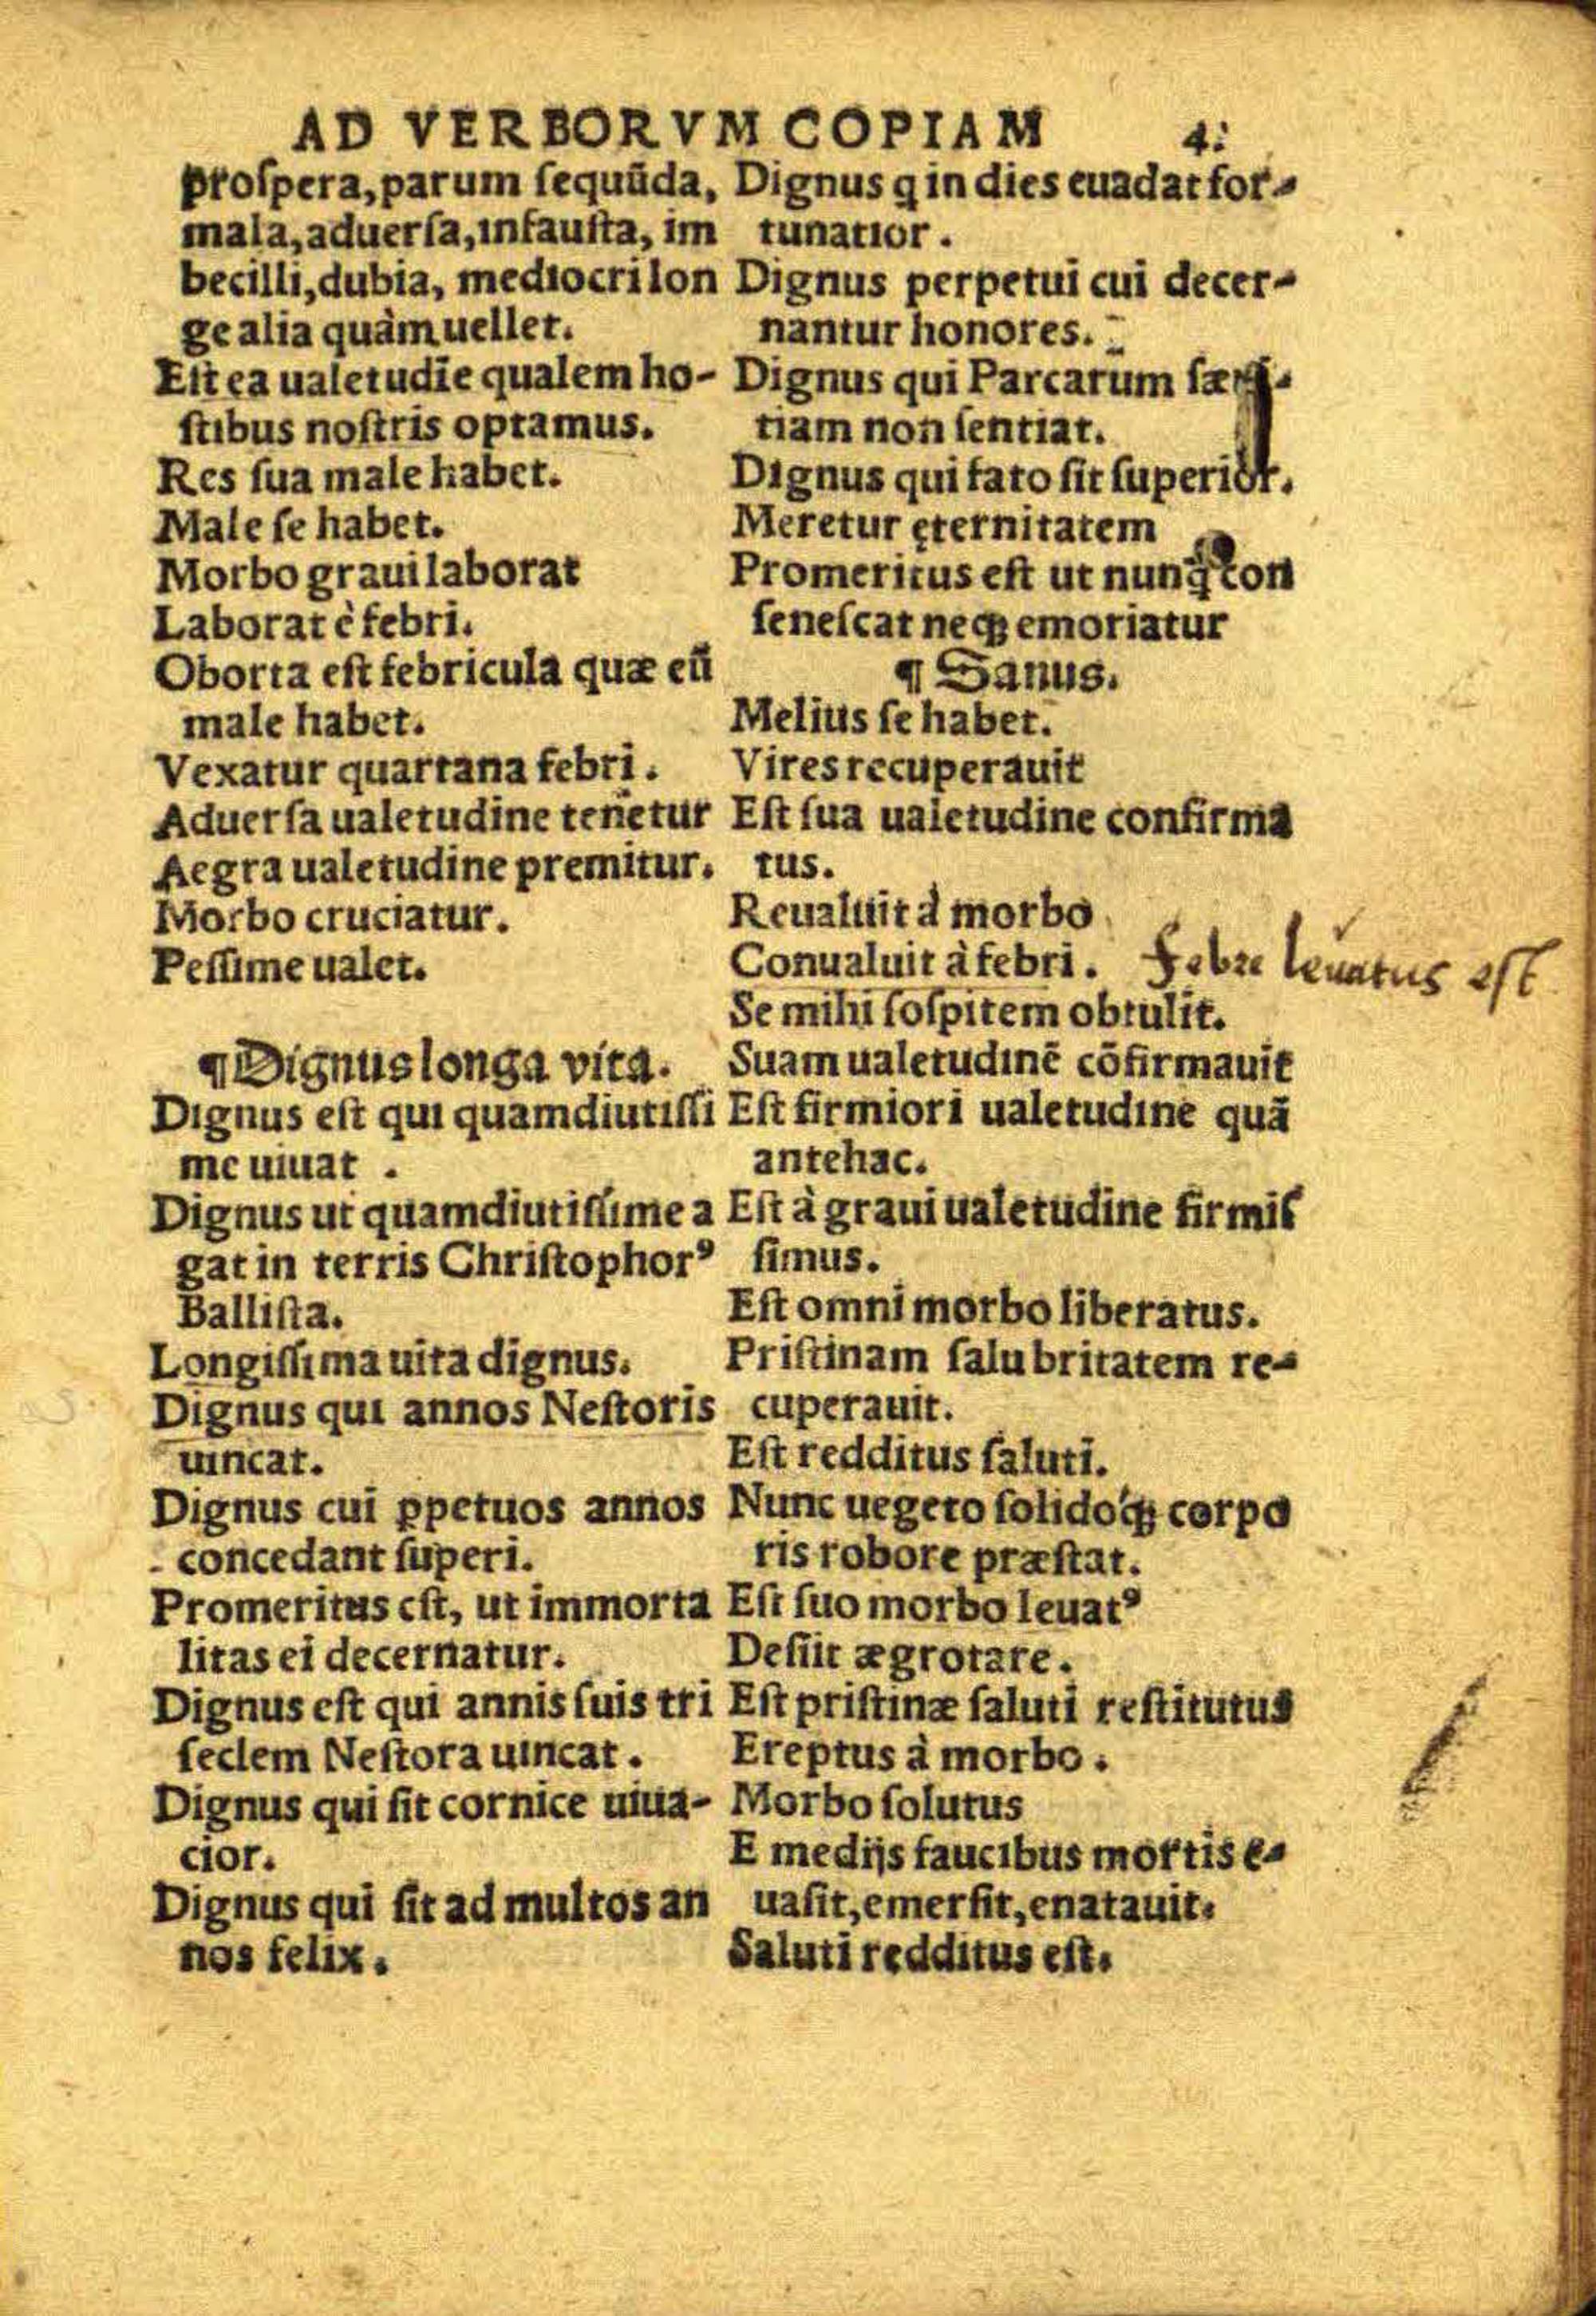 AD VERBORVM COPIAM 4.
proſpera, parum ſequũda,
mala, aduerſa, infauſta, im
becilli, dubia, mediocri lon
ge alia quàm uellet.
Eſt ea ualetudĩe qualem ho-
ſtibus noſtris optamus.
Res ſua male habet.
Male ſe habet.
Morbo graui laborat
Laborat è febri.
Oborta eſt febricula quæ eũ
male habet.
Vexatur quartana febri.
Aduerſa ualetudine tenetur
Aegra ualetudine premitur.
Morbo cruciatur.
Peſſime ualet.
¶ Dignus longa vita.
Dignus eſt qui quamdiutiſſi
me uiuat .
Dignus ut quamdiutiſſime a
gat in terris Chriſtophorꝰ
Balliſta.
Longiſſima uita dignus.
Dignus qui annos Neſtoris
uincat.
Dignus cui ꝑpetuos annos
concedant ſuperi.
Promeritus eſt, ut immorta
litas ei decernatur.
Dignus eſt qui annis ſuis tri
ſeclem Neſtora uincat.
Dignus qui ſit cornice uiua-
cior.
Dignus qui ſit ad multos an
nos felix.
Dignus q in dies euadat for-
tunatior.
Dignus perpetui cui decer-
nantur honores.
Dignus qui Parcarum
tiam non ſentiat.
Dignus qui fato ſit ſuperior.
Meretur ęternitatem
Promeritus eſt ut nunq̃ con
ſeneſcat neqꝫ emoriatur
¶ Sanus.
Melius ſe habet.
Vires recuperauit
Eſt ſua ualetudine confirma
tus.
Reualuit à morbo
Conualuit à febri. Febre leuatus eſt
Se mihi ſoſpitem obtulit.
Suam ualetudinẽ cõfirmauit
Eſt firmiori ualetudine quã
antehac.
Eſt à graui ualetudine firmiſ
ſimus.
Eſt omni morbo liberatus.
Priſtinam ſalubritatem re-
cuperauit.
Eſt redditus ſaluti.
Nunc uegeto ſolidoqꝫ corpo
ris robore præſtat.
Eſt ſuo morbo leuatꝰ
Deſiit ægrotare.
Eſt priſtinæ ſaluti reſtitutus
Ereptus à morbo.
Morbo ſolutus
E medijs faucibus mortis e-
uaſit, emerſit, enatauit.
Saluti redditus eſt.